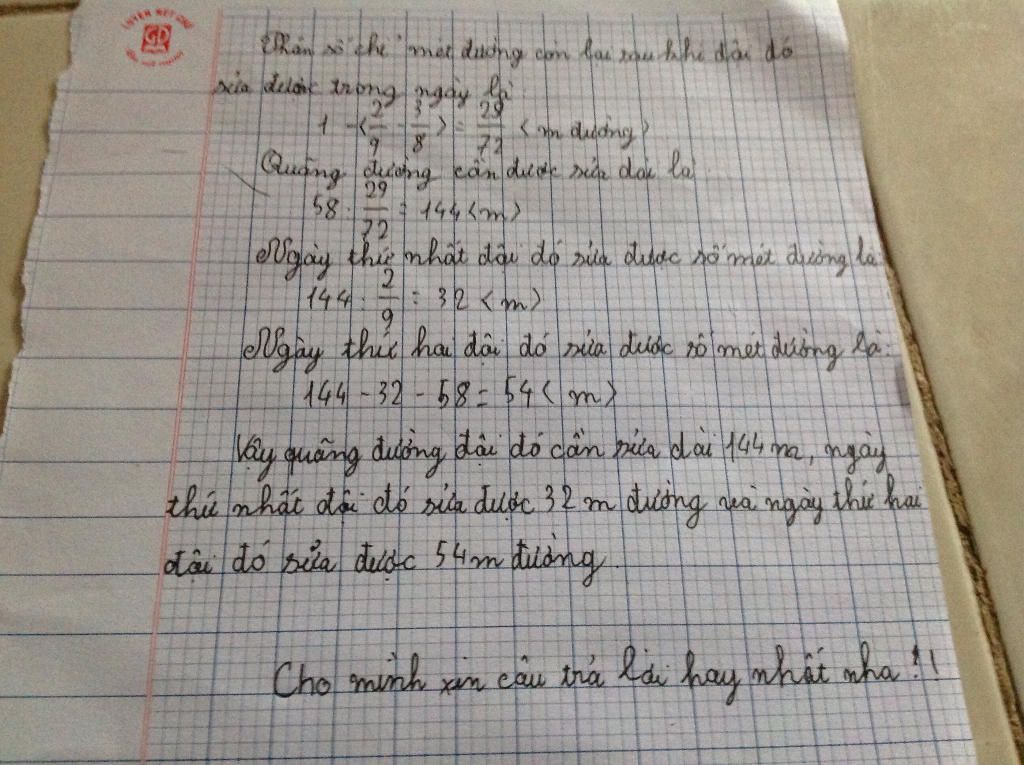 LUYỆN NÉT CHỮ
GD
Phân số chỉ mét đường còn lại sau khi đội đó
sửa được trong ngày là
1 - ( 2/9 - 3/8 ) = 29/72 ( m đường )
Quãng đường cần được sửa dài là
58 . 29/72 = 144 ( m )
Ngày thứ nhất đội đó sửa được số mét đường là
144 . 2/9 = 32 ( m )
Ngày thứ hai đội đó sửa được số mét đường là:
144 - 32 - 58 = 54 ( m )
Vậy quãng đường đội đó cần sửa dài 144 m, ngày
thứ nhất đội đó sửa được 32 m đường và ngày thứ hai
đội đó sửa được 54 m đường.
Cho mình xin câu trả lời hay nhất nha !!